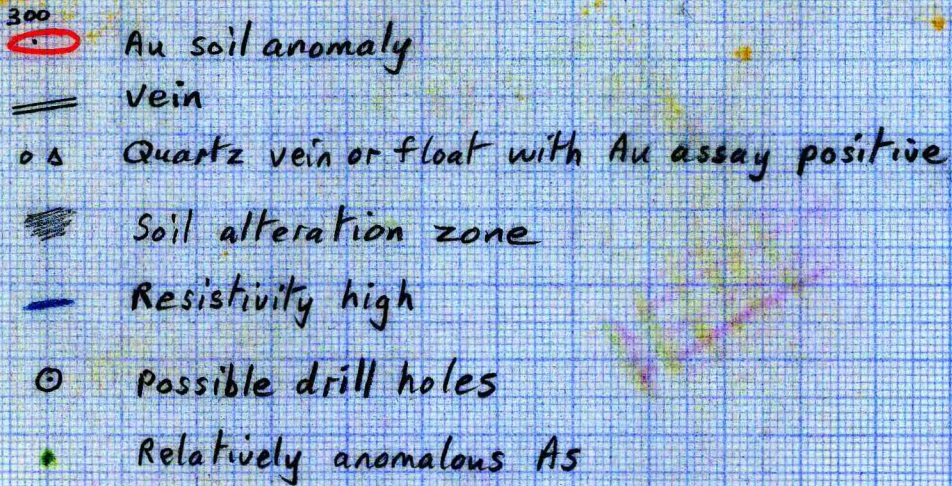 300
Au soil anomaly
vein
Quartz vein or float with Au assay positive
Soil alteration zone
Resistivity high
Possible drill holes
Relatively anomalous As